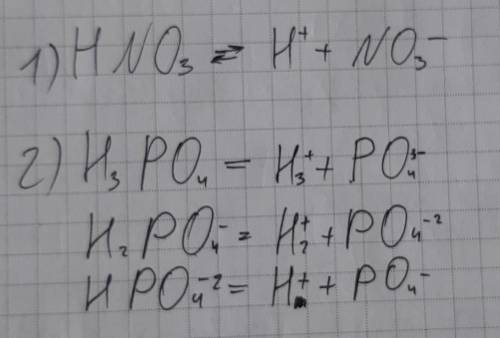 1) HNO₃ ⇄ H⁺ + NO₃⁻
2) H₃PO₄ = H₃⁺ + PO₄³⁻
H₂PO₄⁻ = H₂⁺ + PO₄⁻²
HPO₄⁻² = H⁺ + PO₄⁻